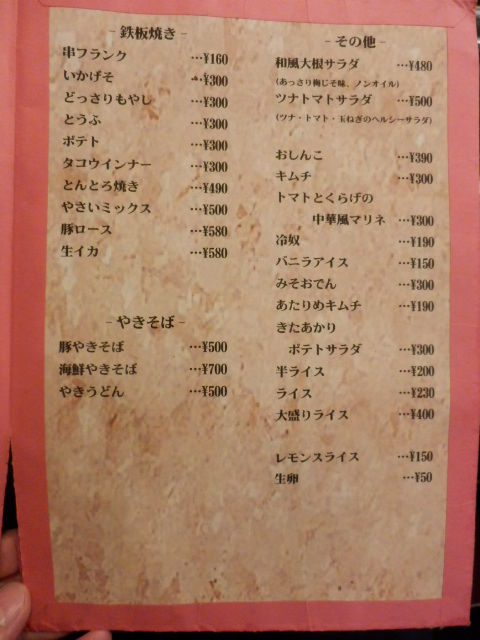 - 鉄板焼き -
串フランク …¥160
いかげそ …¥300
どっさりもやし …¥300
とうふ …¥300
ポテト …¥300
タコウインナー …¥300
とんとろ焼き …¥490
やさいミックス …¥500
豚ロース …¥580
生イカ …¥580
- やきそば -
豚やきそば …¥500
海鮮やきそば …¥700
やきうどん …¥500
- その他 -
和風大根サラダ …¥480
(あっさり梅じそ味、ノンオイル)
ツナトマトサラダ …¥500
(ツナ・トマト・玉ねぎのヘルシーサラダ)
おしんこ …¥390
キムチ …¥300
トマトとくらげの
中華風マリネ …¥300
冷奴 …¥190
バニラアイス …¥150
みそおでん …¥300
あたりめキムチ …¥190
きたあかり
ポテトサラダ …¥300
半ライス …¥200
ライス …¥230
大盛りライス …¥400
レモンスライス …¥150
生卵 …¥50